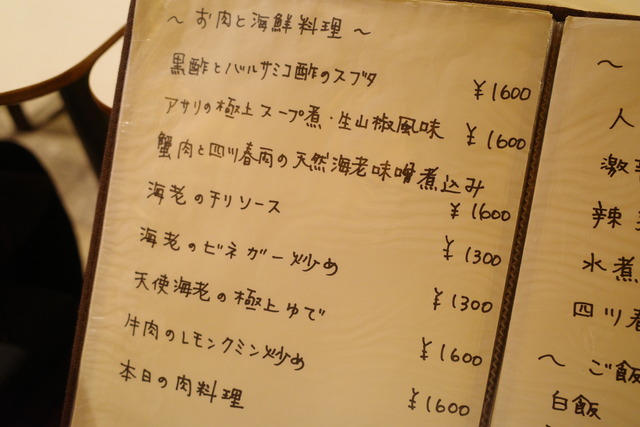 ～ お肉と海鮮料理 ～
黒酢とバルサミコ酢のスブタ ¥1600
アサリの極上スープ煮・生山椒風味 ¥1600
蟹肉と四川春雨の天然海老味噌煮込み ¥1600
海老のチリソース ¥1300
海老のビネガー炒め ¥1300
天使海老の極上ゆで ¥1600
牛肉のレモンクミン炒め ¥1600
本日の肉料理
～
人
激
辣
水煮
四川
～ ご飯
白飯